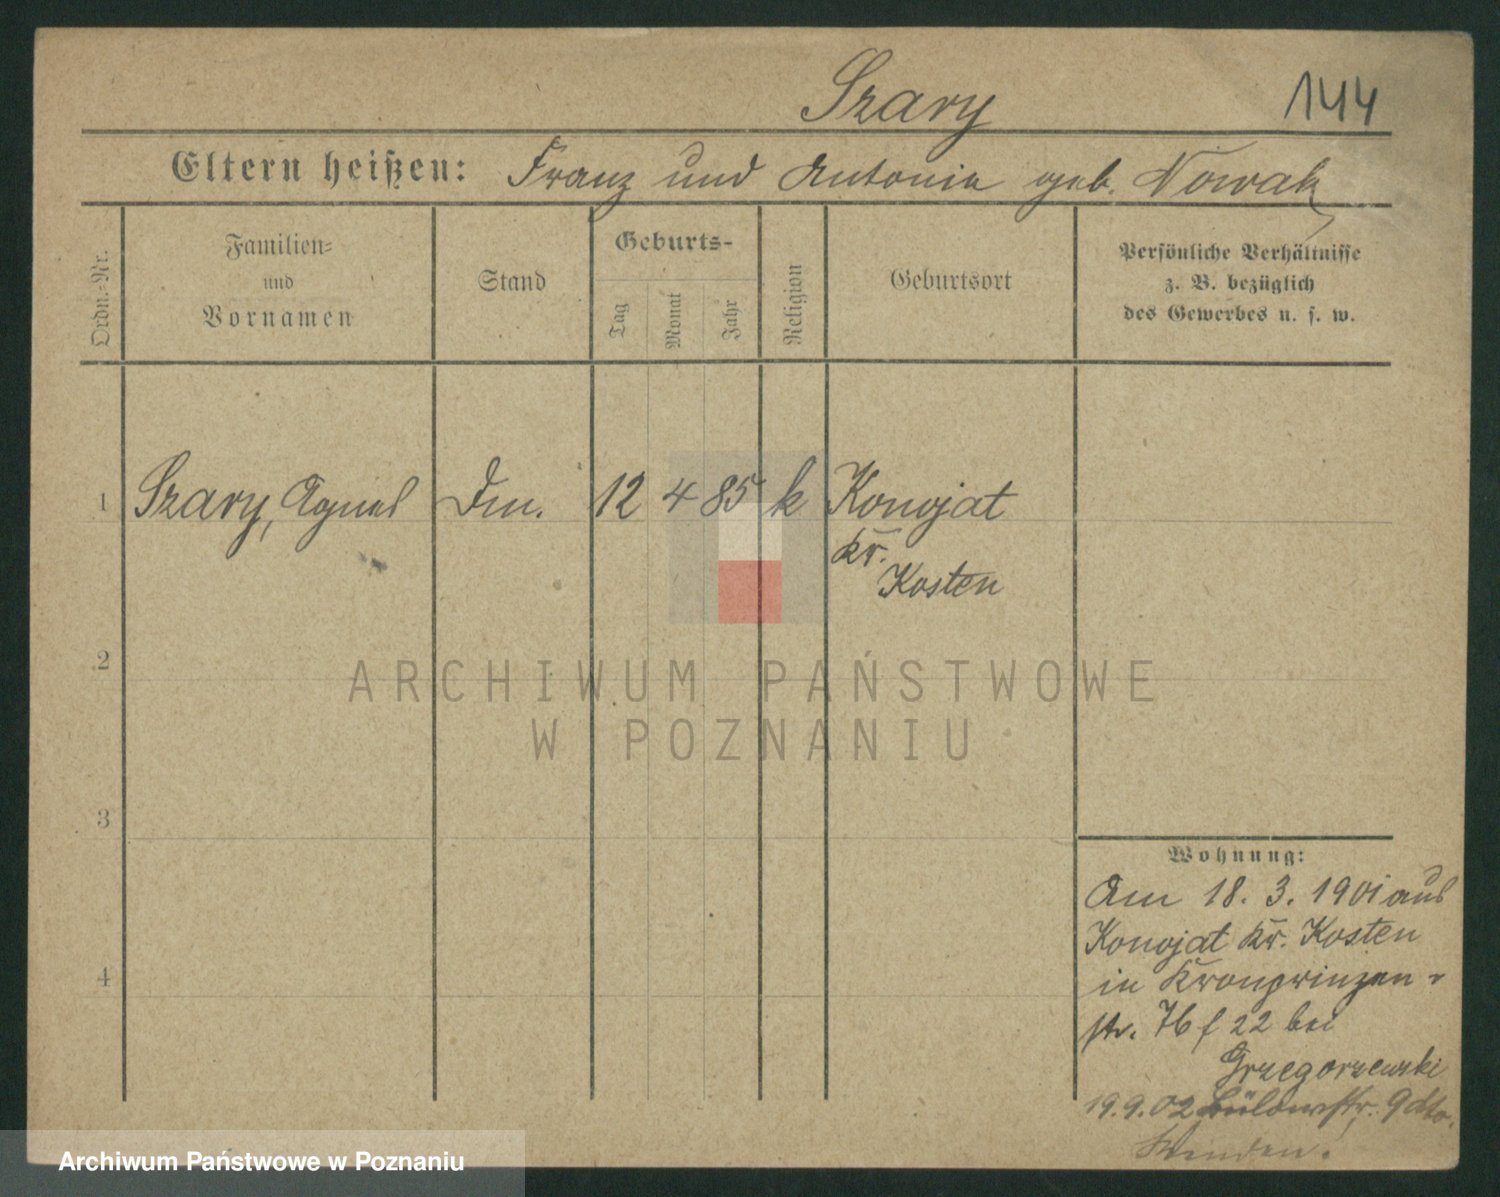 Szary
144
Eltern heißen: Franz und Antonia geb. Nowak
Ordn.-Nr.
Familien-
und
Vornamen
Stand
Geburts-
Tag
Monat
Jahr
Religion
Geburtsort
Persönliche Verhältnisse
z. B. bezüglich
des Gewerbes u. s. w.
1 Szary, Agnes Dm. 12 4 85 k Konojat
Kr.
Kosten
2
3
4
ARCHIWUM PAŃSTWOWE
W POZNANIU
Wohnung:
Am 18. 3. 1901 aus
Konojat Kr. Kosten
in Kronprinzen-
str. 76 f 22 bei
Grzegorzewski
19.9.02 Bülowstr. 9 dto.
Wenden!
Archiwum Państwowe w Poznaniu